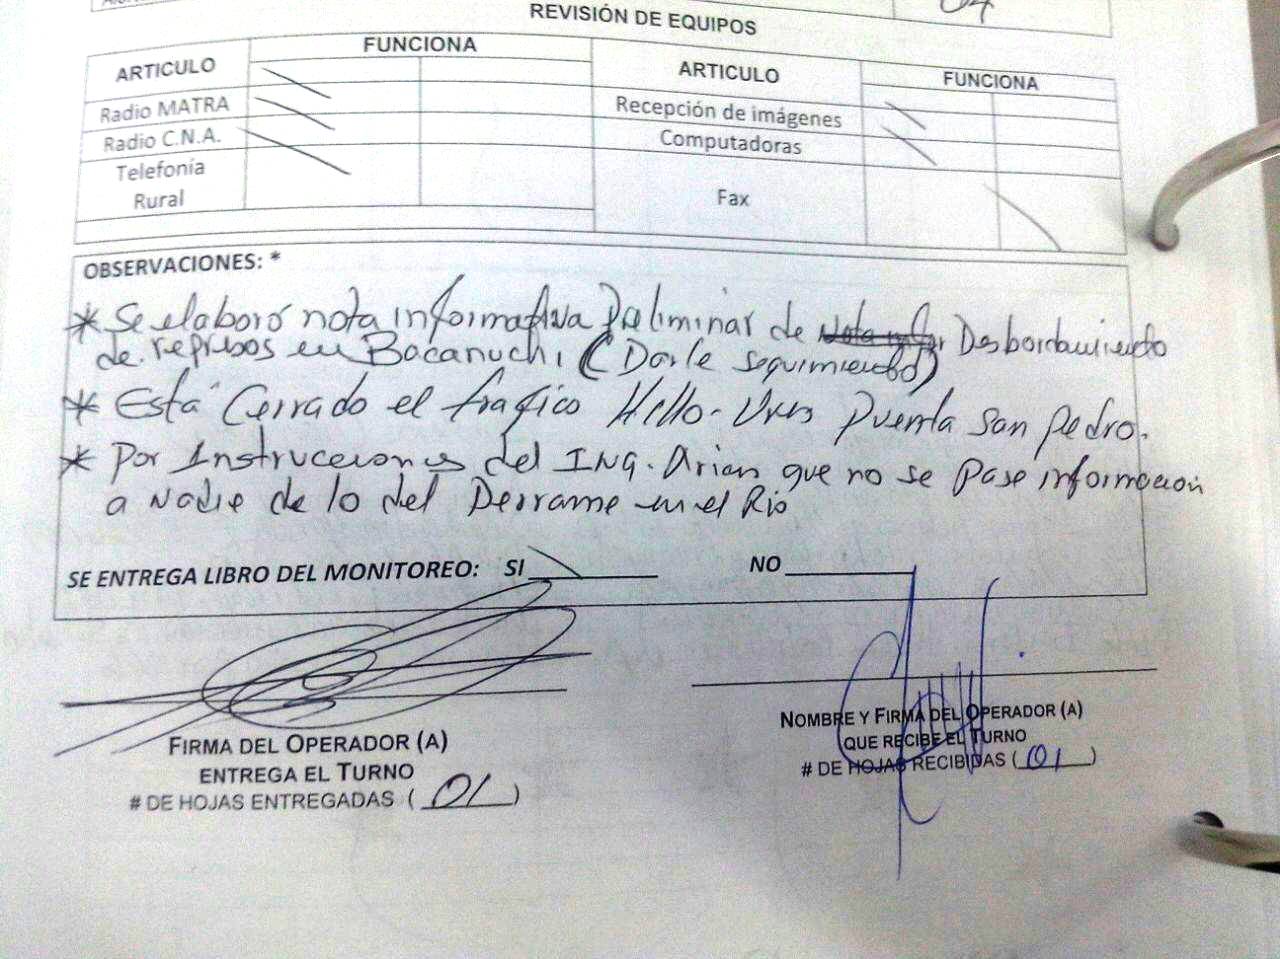 REVISIÓN DE EQUIPOS
ARTICULO FUNCIONA ARTICULO FUNCIONA
Radio MATRA Recepción de imágenes
Radio C.N.A. Computadoras
Telefonía
Rural Fax
OBSERVACIONES: *
* Se elaboró nota informativa Preliminar de Desbordamiento
de represos en Bacanuchi (Darle seguimiento)
* Está Cerrado el trafico Hillo - Ures Puente San Pedro.
* Por Instrucciones del ING. Arian que no se Pase informacion
a Nadie de lo del Derrame en el Rio
SE ENTREGA LIBRO DEL MONITOREO: SI NO
FIRMA DEL OPERADOR (A)
ENTREGA EL TURNO
# DE HOJAS ENTREGADAS ( 01 )
NOMBRE Y FIRMA DEL OPERADOR (A)
QUE RECIBE EL TURNO
# DE HOJAS RECIBIDAS ( 01 )